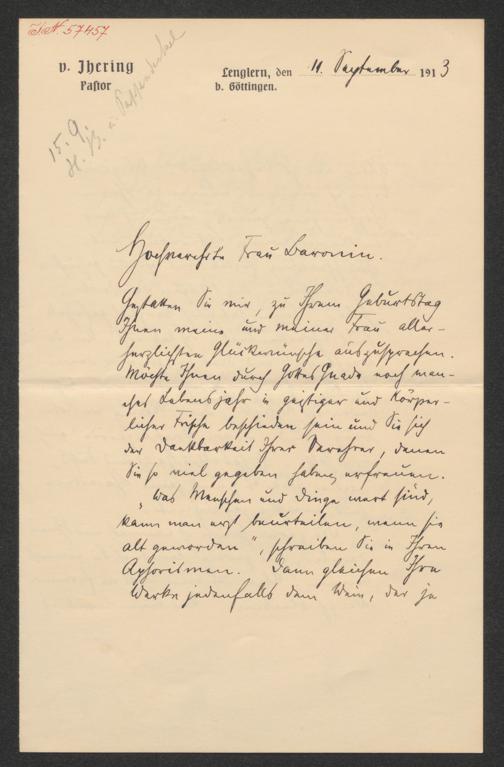 I.N. 57457
v. Ihering
Pastor
Lenglern, den 11. September 1913
b. Göttingen.
15. 9.
Hochverehrte Frau Baronin.
Gestatten Sie mir, zu Ihrem Geburtstag
Ihnen meine und meiner Frau aller-
herzlichsten Glückwünsche auszusprechen.
Möchte Ihnen durch Gottes Gnade noch man-
ches Lebensjahr in geistiger und körper-
licher Frische beschieden sein und Sie sich
der Dankbarkeit Ihrer Verehrer, denen
Sie so viel gegeben haben, erfreuen.
„Was Menschen und Dinge wert sind,
kann man erst beurteilen, wenn sie
alt geworden", schreiben Sie in Ihren
Aphorismen. Dann gleichen Ihre
Werke jedenfalls dem Wein, der je